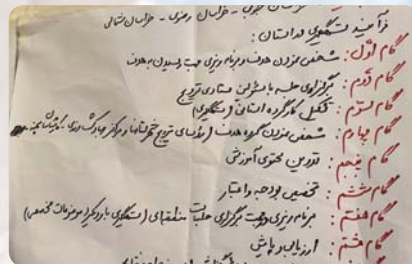 خراسان جنوبی - خراسان رضوی - خراسان شمالی
فرآیند تسهیلگری در استان:
گام اول: مشخص نمودن هدف و برنامه ریزی جهت رسیدن به هدف
گام دوم: برگزاری جلسه با مسئولین ستادی ترویج
گام سوم: تشکیل کارگروه استانی (تسهیلگری)
گام چهارم: مشخص نمودن گروه هدف (روسای ترویج شهرستانها و مراکز جهاد کشاورزی -
گام پنجم: تدوین محتوی آموزش
گام ششم: تخصیص بودجه و اعتبار
گام هفتم: برنامه ریزی جهت برگزاری جلسات منطقه ای (تسهیلگری با رویکرد موضوعات تخصصی)
گام هشتم: ارزیابی و پایش